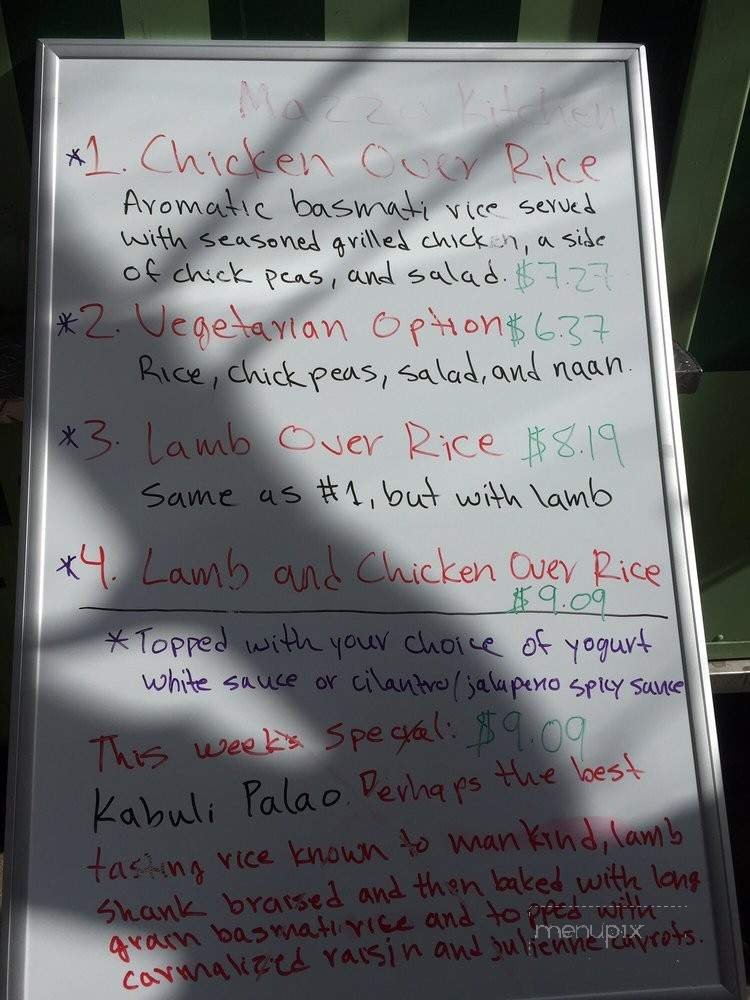 Mazza Kitchen
*1. Chicken Over Rice
Aromatic basmati rice served
with seasoned grilled chicken, a side
of chick peas, and salad. $7.27
*2. Vegetarian Option $6.37
Rice, chick peas, salad, and naan.
*3. Lamb Over Rice $8.19
Same as #1, but with lamb
*4. Lamb and Chicken Over Rice
$9.09
*Topped with your choice of yogurt
white sauce or cilantro/jalapeno spicy sauce
This week's Special: $9.09
Kabuli Palao. Perhaps the best
tasting rice known to mankind, lamb
shank braised and then baked with long
grain basmati rice and topped with
carmalized raisin and julienne carrots.
menupix